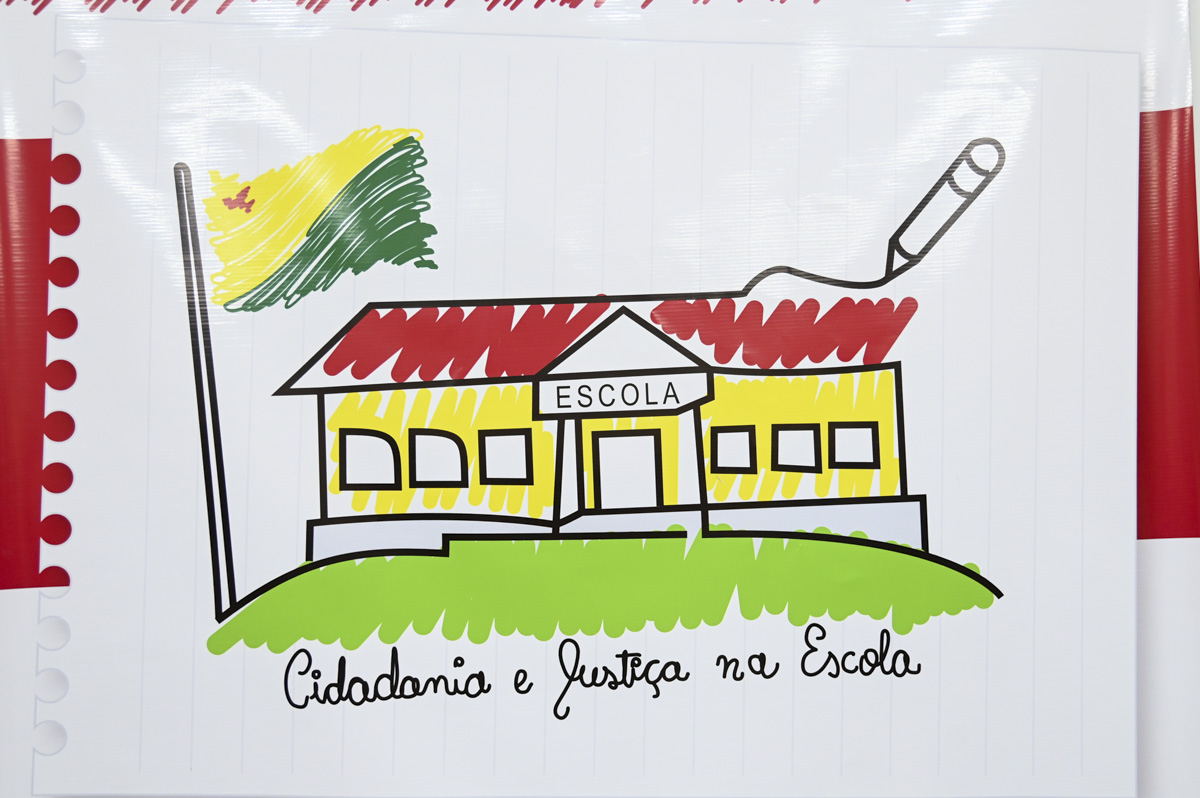 ESCOLA
Cidadania e Justiça na Escola